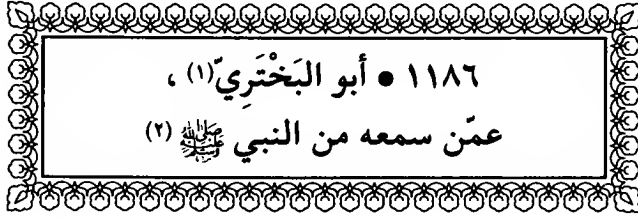 ١١٨٦ ● أبو البَخْتَرِيّ(١) ،
عمّن سمعه من النبي ﷺ (٢)